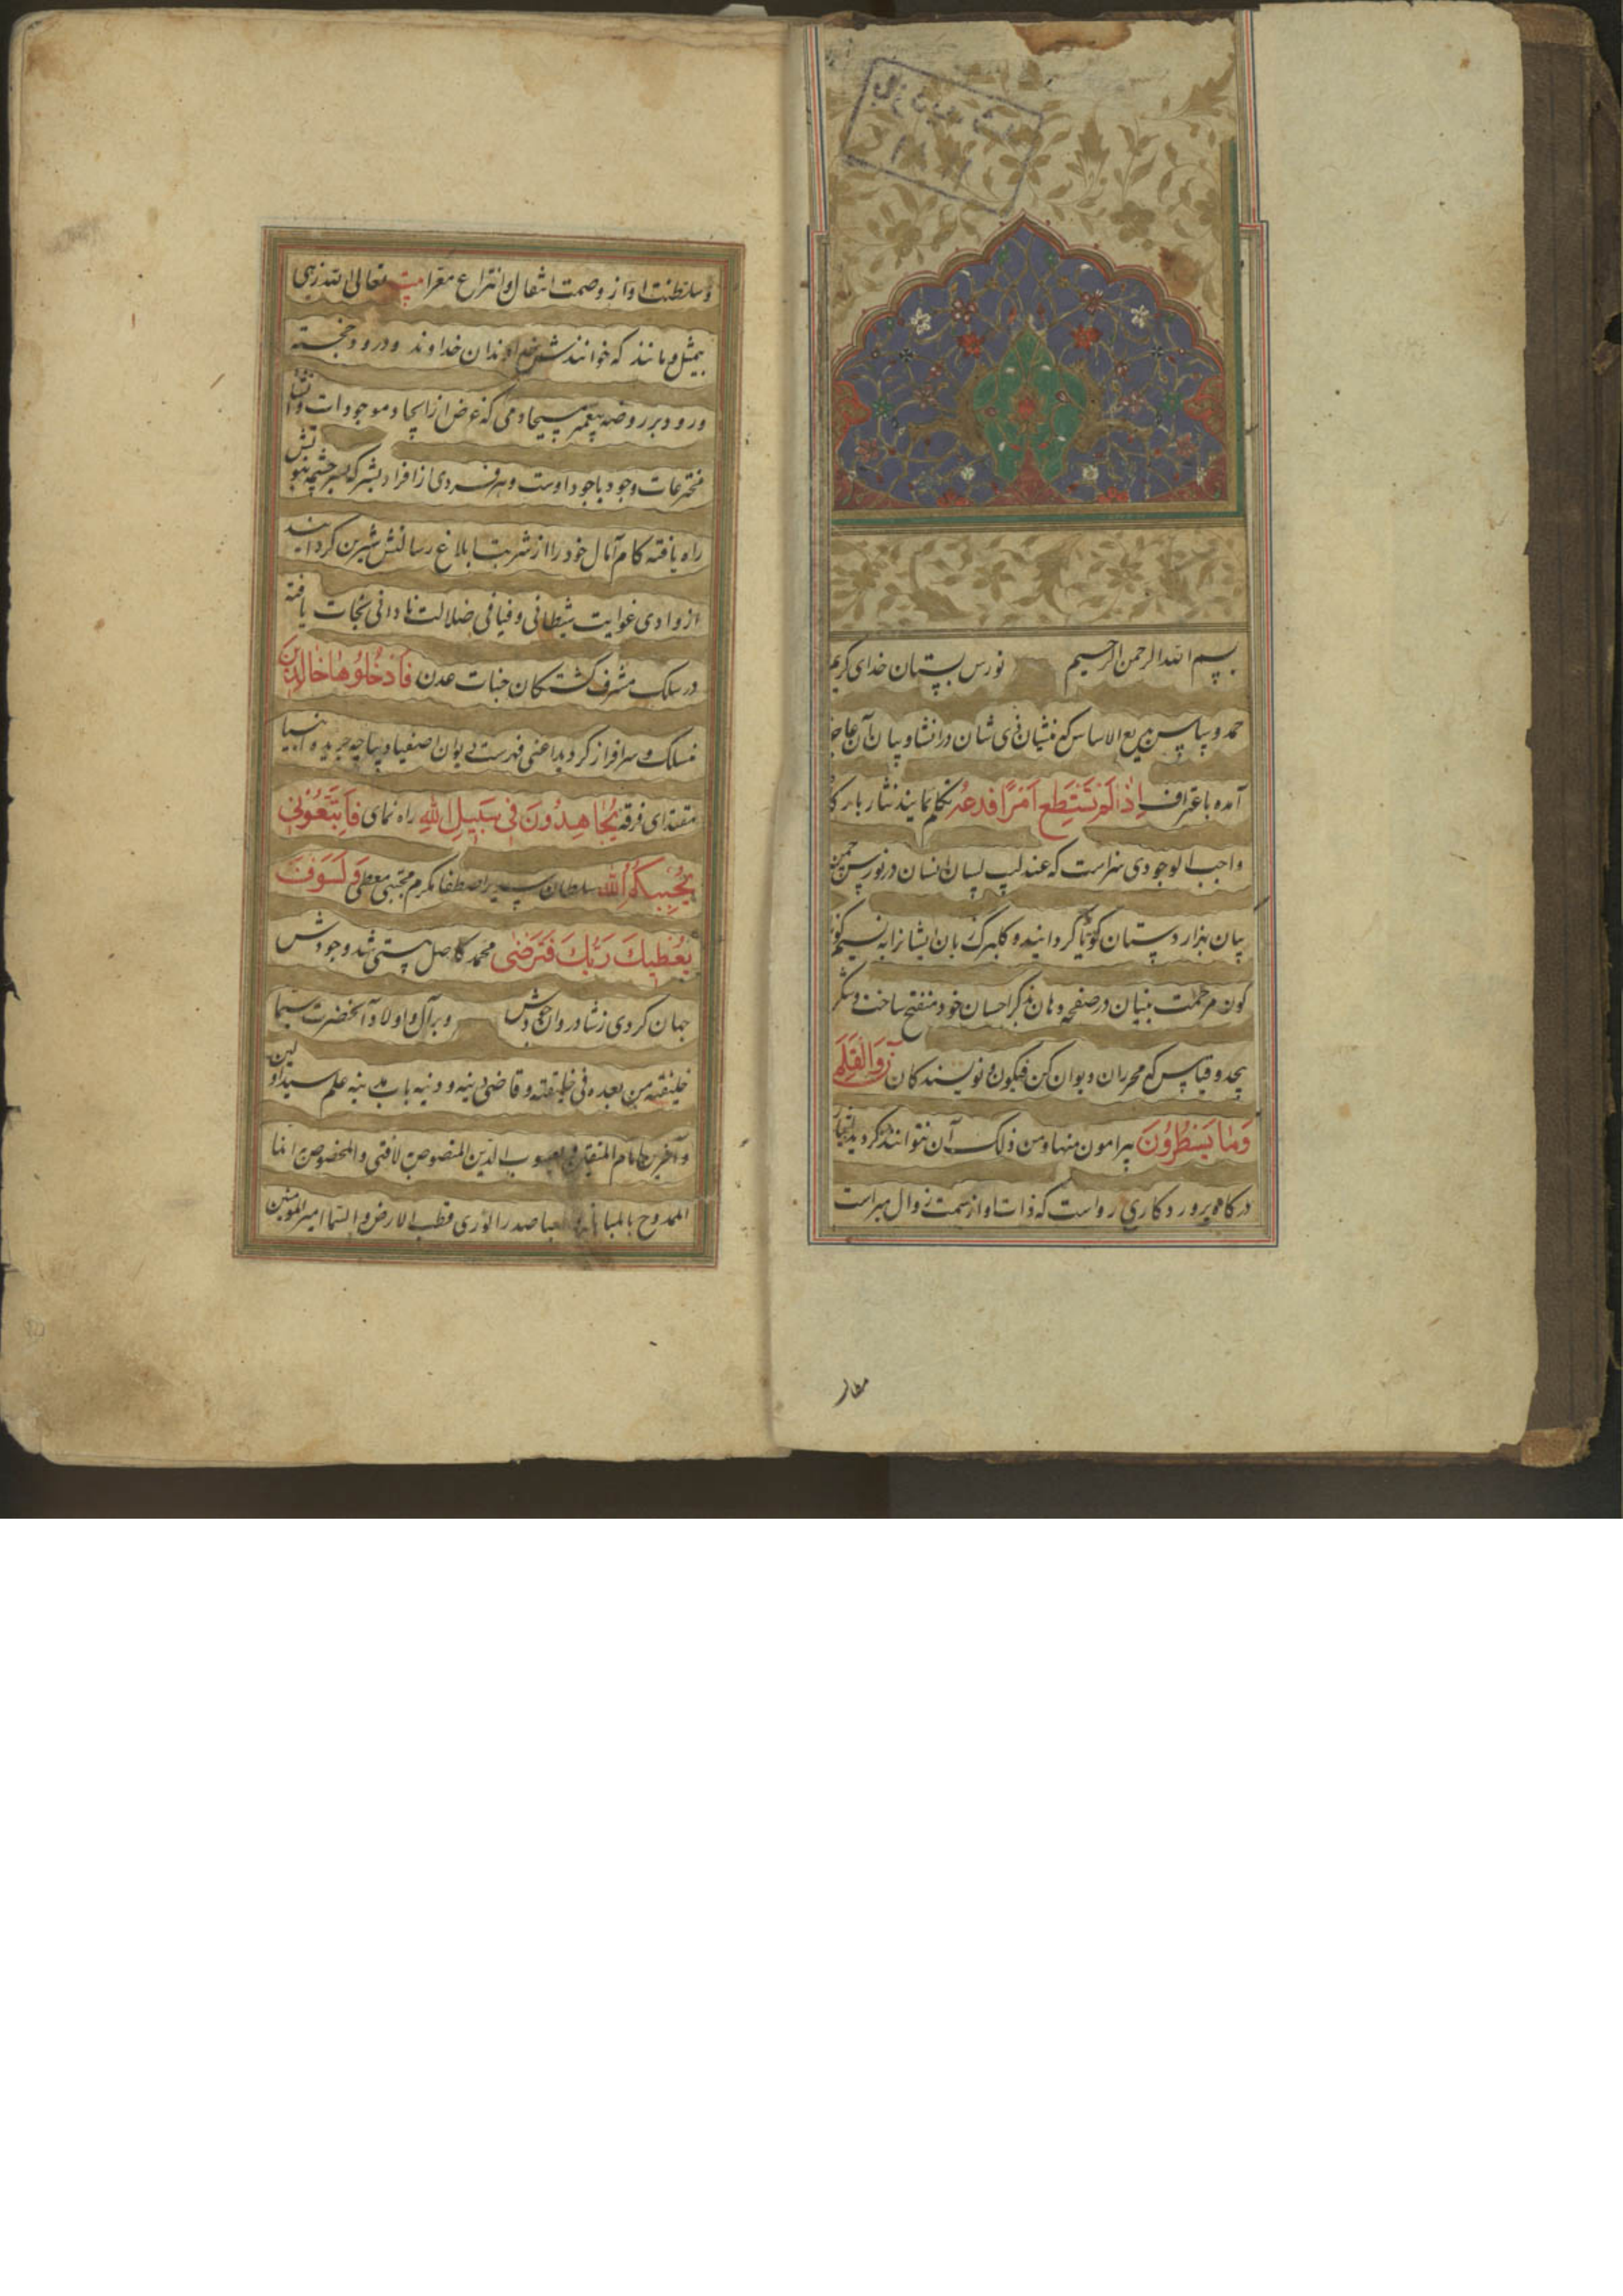 بسم الله الرحمن الرحیم نورس بستان خدای کریم
حمد و سپاس بدیع الاساس که منشیان ذی شان در انشاء و بیان آن عاجز
آمده باعتراف اِذا لَم تَستَطِع اَمرًا فَدَعهُ تکلم نمایند نثار بارکاه
واجب الوجودی سزاست که عندلیب لسان انسان در نورس چمن
بیان بهزار دستان کویا کردانیده و کلبرک زبان ایشانرا به نسیم
کون مرحمت بنیان در صفحه دهان بذکر احسان خود منفتح ساخت و شکر
بیحد و قیاس که محرران دیوان کن فیکون و نویسندکان نٓ وَالْقَلَمِ
وَمَا يَسْطُرُونَ پیرامون منها و من ذلک آن نتوانند کردید
درکاه پرورد کاری رواست که ذات او از سمت زوال مبراست
مقار
و سلطنت او از وصمت انتقال و انتزاع معرا بیت تعالی الله زهی
بیمثل و مانند که خوانندش خداوندان خداوند و درود خجسته
ورود بر روضه پیغمبر مسیحا دمی که غرض از ایجاد موجودات و انشاء
مخترعات وجود باجود اوست و هر فردی از افراد بشر که بسرچشمه نبوتش
راه یافته کام آمال خود را از شربت ابلاغ رسالتش شیرین کردانید
از وادی غوایت شیطانی و فیافی ضلالت نادانی نجات یافته
در سلک مشرف کشتکان جنات عدن فَادْخُلُوهَا خَالِدِينَ
منسلک و سرافراز کردید اعنی فهرست دیوان اصفیا دیباچه جریده انبیا
مقتدای فرقه يُجَاهِدُونَ فِي سَبِيلِ اللهِ راه نمای فَاتَّبِعُونِي
يُحْبِبْكُمُ اللهُ سلطان سریر اصطفا مکرم مجتبی معطی وَلَسَوْفَ
يُعْطِيكَ رَبُّكَ فَتَرْضَى محمد کاصل هستی شد وجودش
جهان کردی ز شادروان جودش و بر آل و اولاد آنحضرت سیما
خلیفته من بعده فی خلیقته و قاضی دینه و باب مدینه علم سید اولین
و آخرین امام المتقین و یعسوب الدین المنصوص بلافتی و المخصوص بانما
الممدوح صدر الوری قطب الارض و السما امیر المومنین